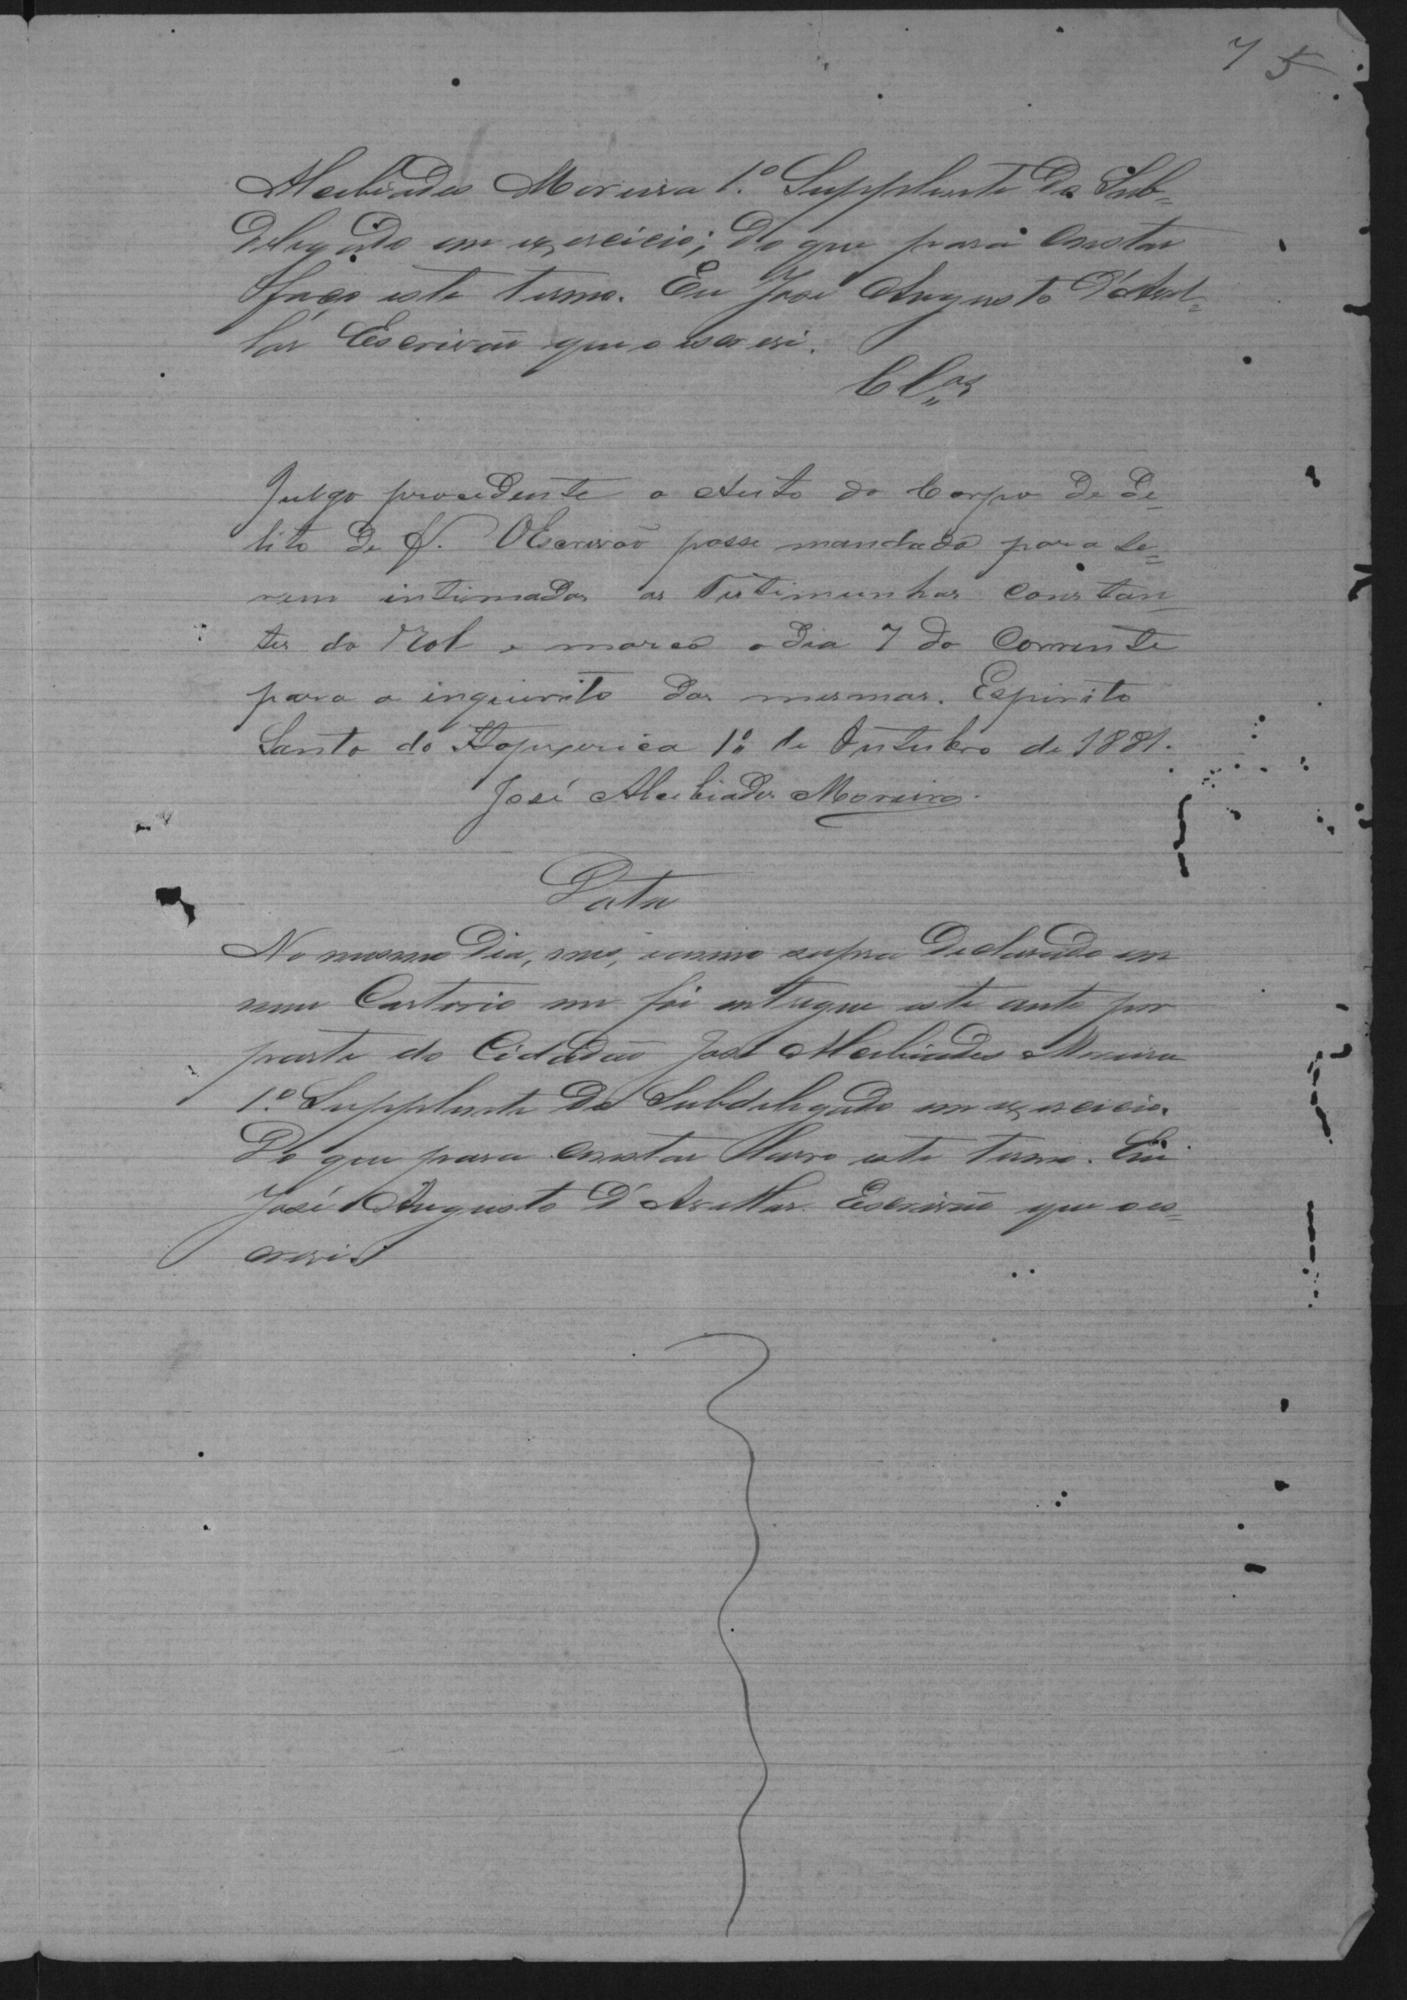 7 5
Alcibiades Moreira 1.º Supplente do Sub=
delegado em exercicio; do que para constar
faço este termo. Eu José Augusto d'Avel=
lar Escrivão que o escrevi.
Cl.os
Julgo procedente o Auto do Corpo de De=
lito de f. O Escrivão passe mandado para se=
rem intimadas as Testimunhas constan=
tes do Rol e marco o dia 7 do Corrente
para o inquerito das mesmas. Espirito
Santo do Itapecerica 1º de Outubro de 1881.
José Alcibiades Moreira.
Data
No mesmo dia, mes, e anno supra declarado em
meu Cartorio me foi entregue este auto por
parte do Cidadão José Alcibiades Moreira
1.º Supplente do Subdelegado em exercicio.
Do que para constar lavro este termo. Eu
José Augusto D'Avellar Escrivão que o es=
crevi.